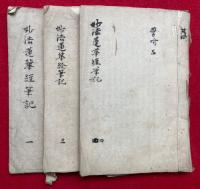 妙法蓮華經筆記
一
妙法蓮華經筆記
二
妙法蓮華經筆記
四
譬喻品